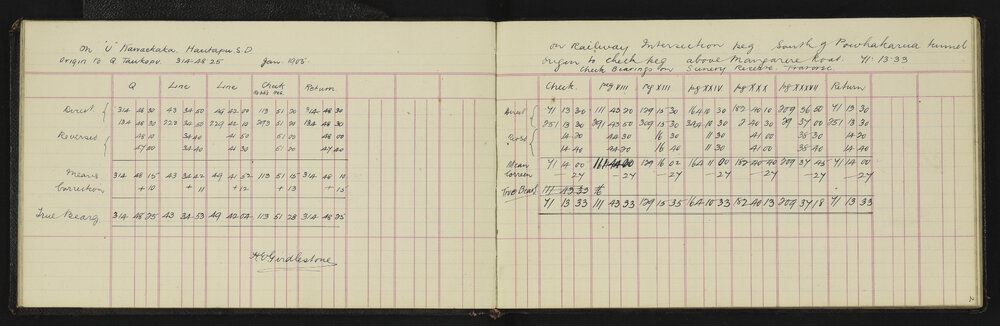 On 'U' Hautapu. S.D
Origin to Q Taukapu. 314.48 25 Jan 1905
Q Line Line Check Return
Direct 314 48 30 43 34 50 49 42 00 113 51 30 314 48 30
134 48 30 223 34 50 229 42 10 293 51 30 134 48 30
Reverses 48 10 34 40 41 50 51 00 48 00
47 00 34 40 41 30 51 00 47 40
Means 314 48 15 43 34 42 49 41 52 113 51 15 314 48 10
Correction + 10 + 11 + 12 + 13 + 15
True Bearg 314 48 25 43 34 53 49 42 04 113 51 28 314 48 25
H.E. Girdlestone
On Railway Intersection peg South of Powhakarua tunnel
Origin to check peg above Mangarere Road. 71. 13. 33
Check Bearings for Survey Reserve Traverse
Check. Peg XIII Peg XXIV Peg XXX Peg XXXVII Return
Direct 71 13 30 111 43 20 129 15 30 164 10 30 182 40 10 209 36 50 71 13 30
251 13 30 291 43 50 309 15 30 344 10 30 2 40 30 29 37 00 251 13 30
14 20 44 30 16 30 11 30 41 00 38 30 14 20
14 40 44 30 16 40 11 30 41 00 38 40 14 40
Mean 71 14 00 111 44 00 129 16 02 164 11 00 182 40 40 209 37 45 71 14 00
Correcn -27 -27 -27 -27 -27 -27 -27
True Bearg 111 43 33
71 13 33 111 43 33 129 15 35 164 10 33 182 40 13 209 37 18 71 13 33